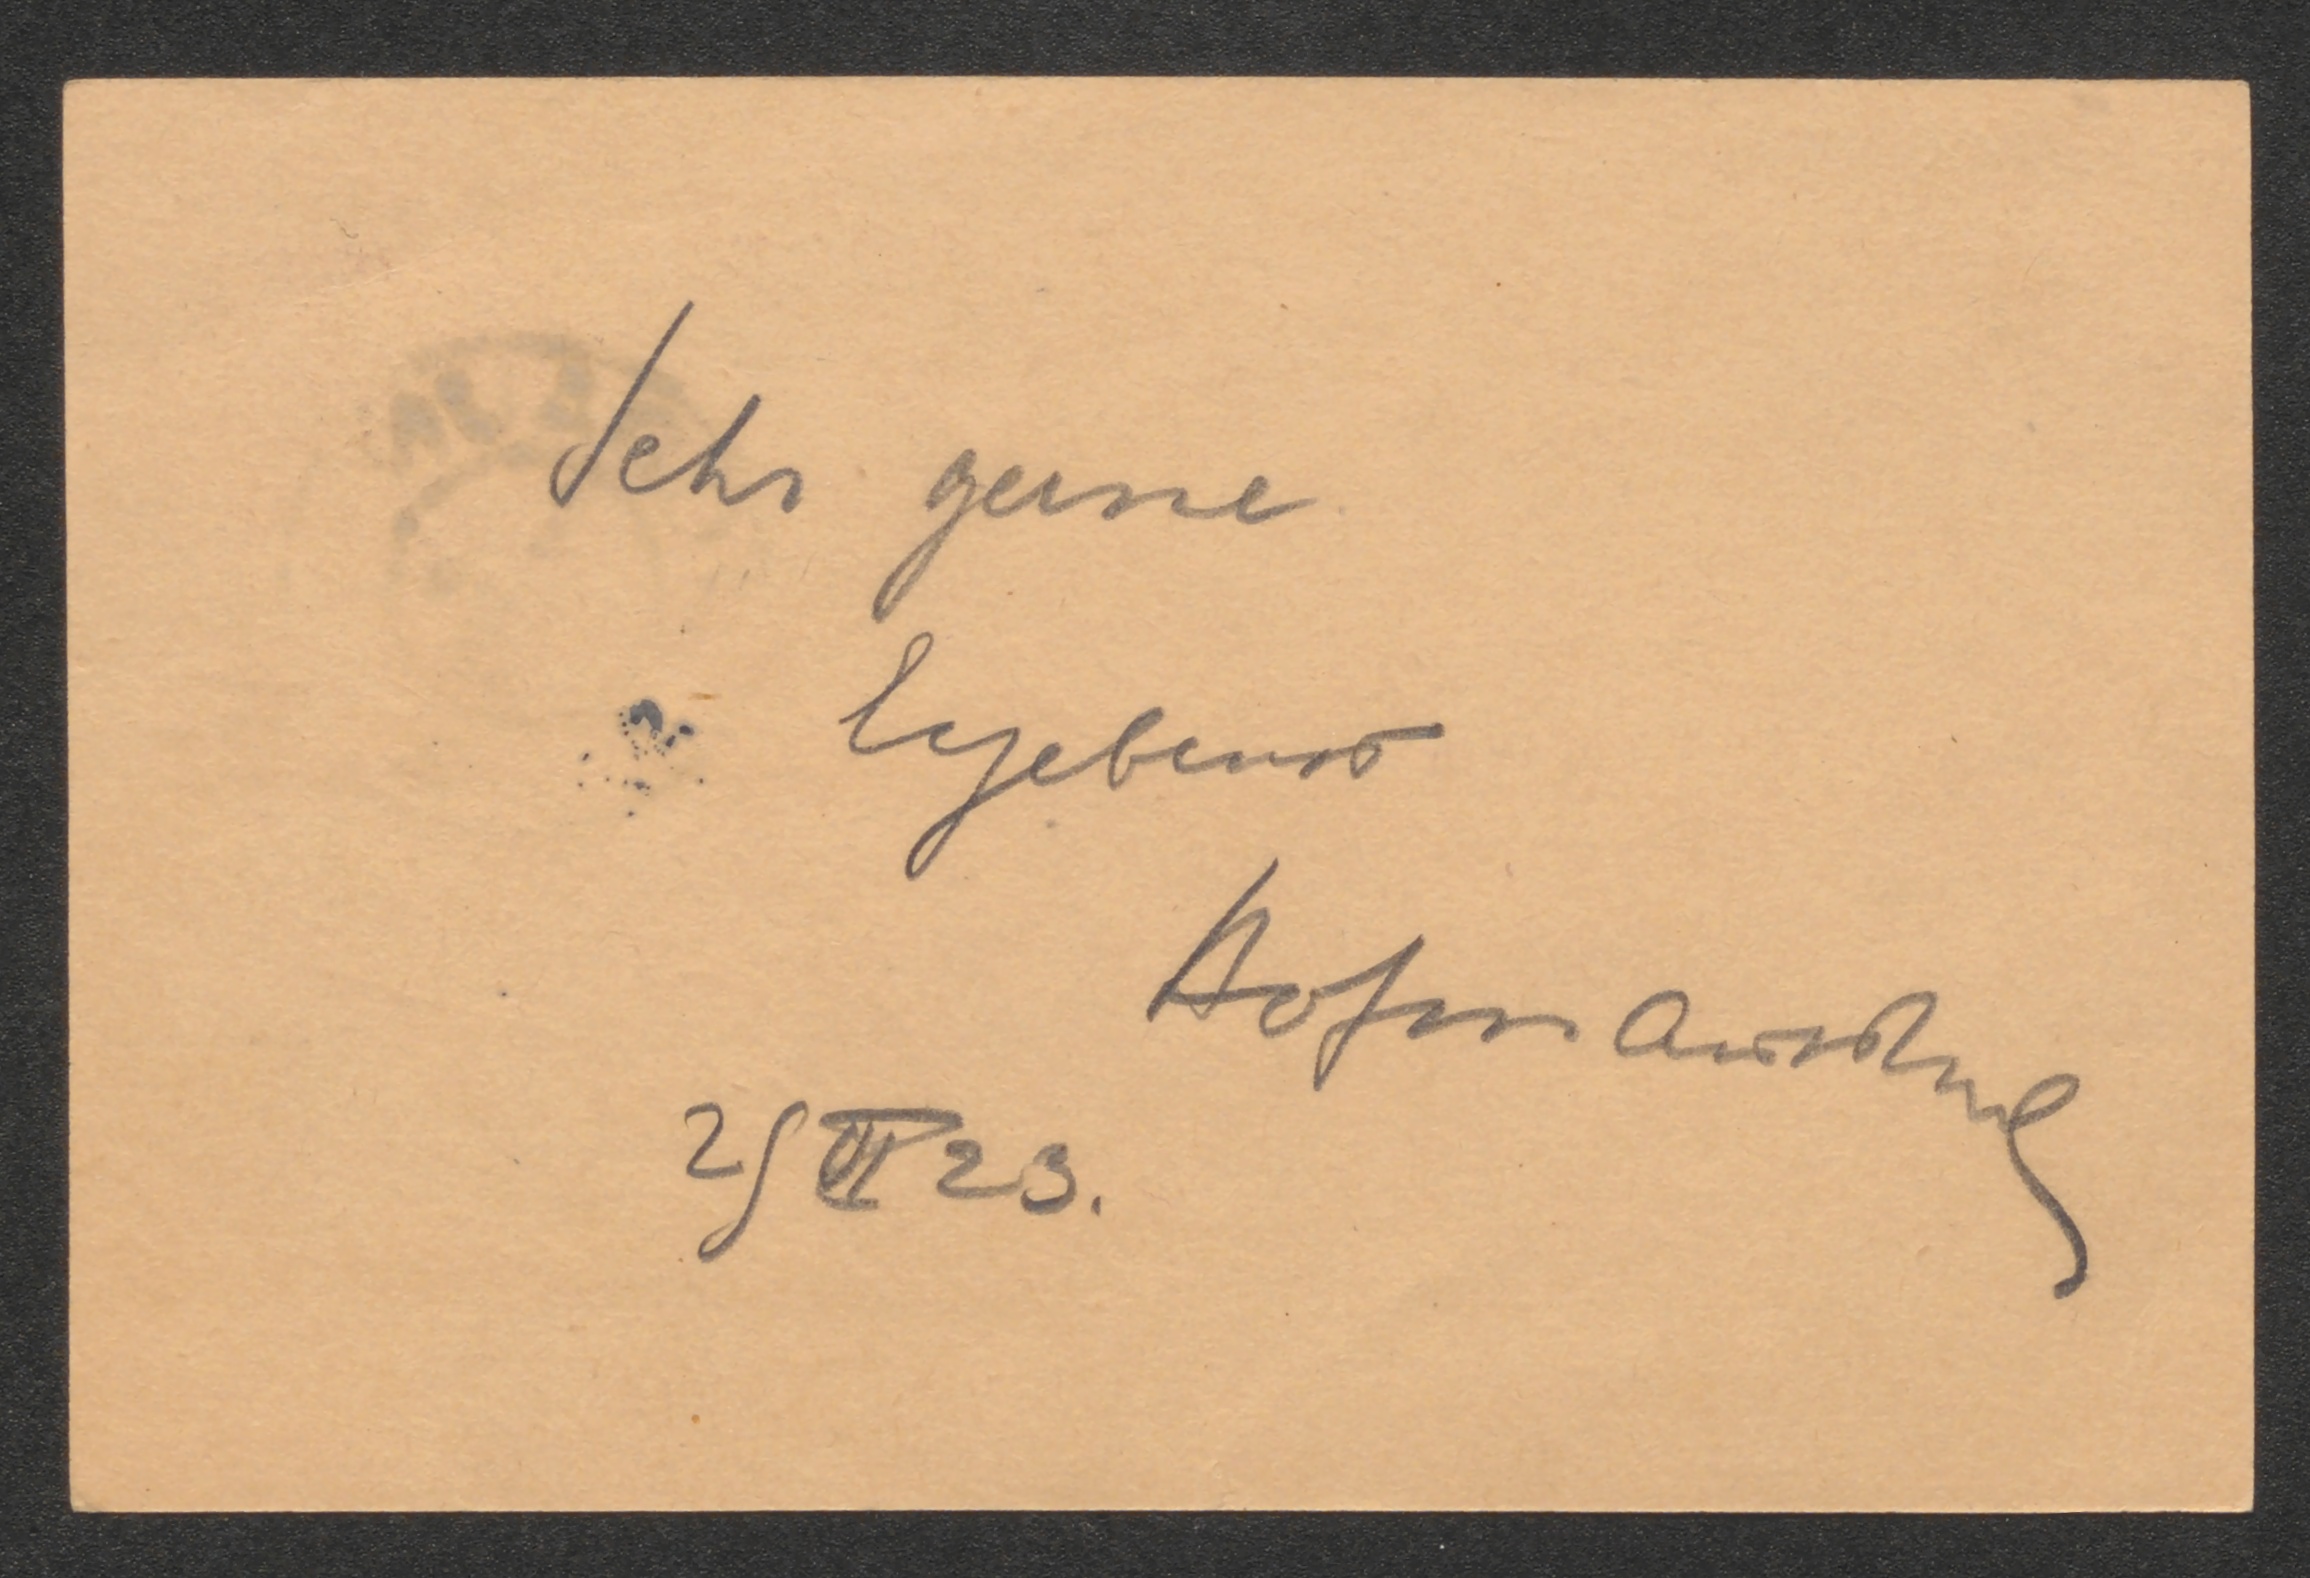 Sehr gerne
Ergebenst
Hofmannsthal
25 VI 23.